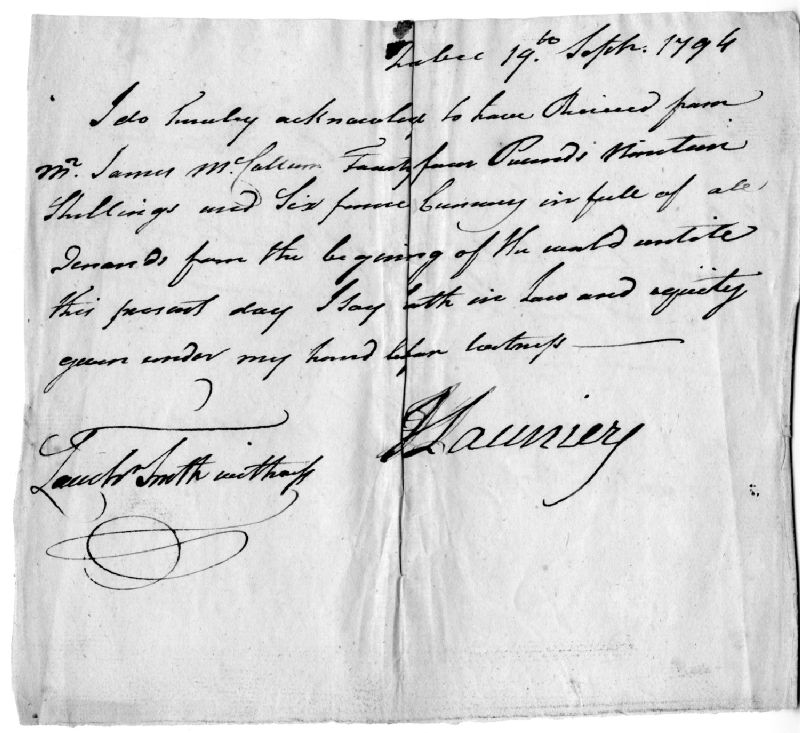 Quebec 19th Sepbr. 1794
I do hereby acknowledg to have Received from
Mr. James McCallum Fourty four Pounds Nineteen
Shillings and Six pence Currency in full of all
Demands from the begining of the world untile
this present day I say both in Law and equity
given under my hand before Witness
Lauchn Smith withness